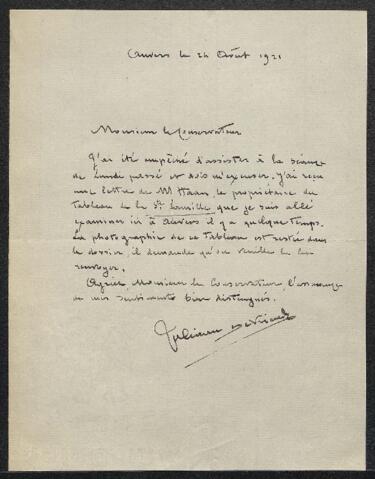 Anvers le 24 Août 1921
Monsieur le Conservateur
J'ai été empêché d'assister à la séance
de lundi passé et dois m'excuser. J'ai reçu
une lettre de Mr Haan, le propriétaire du
Tableau de la Ste famille que je suis allé
examiner ici à Anvers il y a quelque temps.
La photographie de ce Tableau est restée dans
le dossier, il demande qu'on veuille la lui
renvoyer.
Agréez, Monsieur le Conservateur l'assurance
de mes sentiments bien distingués.
Juliaan De Vriendt